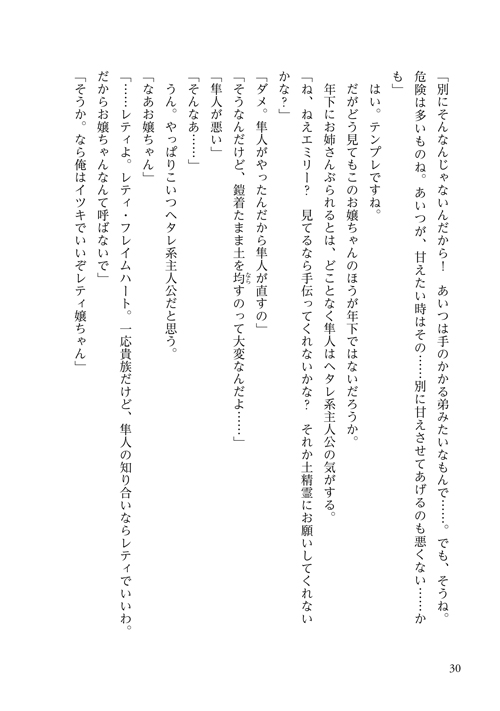 「別にそんなんじゃないんだから！　あいつは手のかかる弟みたいなもんで……。でも、そうね。
危険は多いものね。あいつが、甘えたい時はその……別に甘えさせてあげるのも悪くない……か
も」
はい。テンプレですね。
だがどう見てもこのお嬢ちゃんのほうが年下ではないだろうか。
年下にお姉さんぶられるとは、どことなく隼人はヘタレ系主人公の気がする。
「ね、ねえエミリー？　見てるなら手伝ってくれないかな？　それか土精霊にお願いしてくれない
かな？」
「ダメ。隼人がやったんだから隼人が直すの」
「そうなんだけど、鎧着たまま土を均すのって大変なんだよ……」
なら
「隼人が悪い」
「そんなあ……」
うん。やっぱりこいつヘタレ系主人公だと思う。
「なあお嬢ちゃん」
「……レティよ。レティ・フレイムハート。一応貴族だけど、隼人の知り合いならレティでいいわ。
だからお嬢ちゃんなんて呼ばないで」
「そうか。なら俺はイツキでいいぞレティ嬢ちゃん」
30